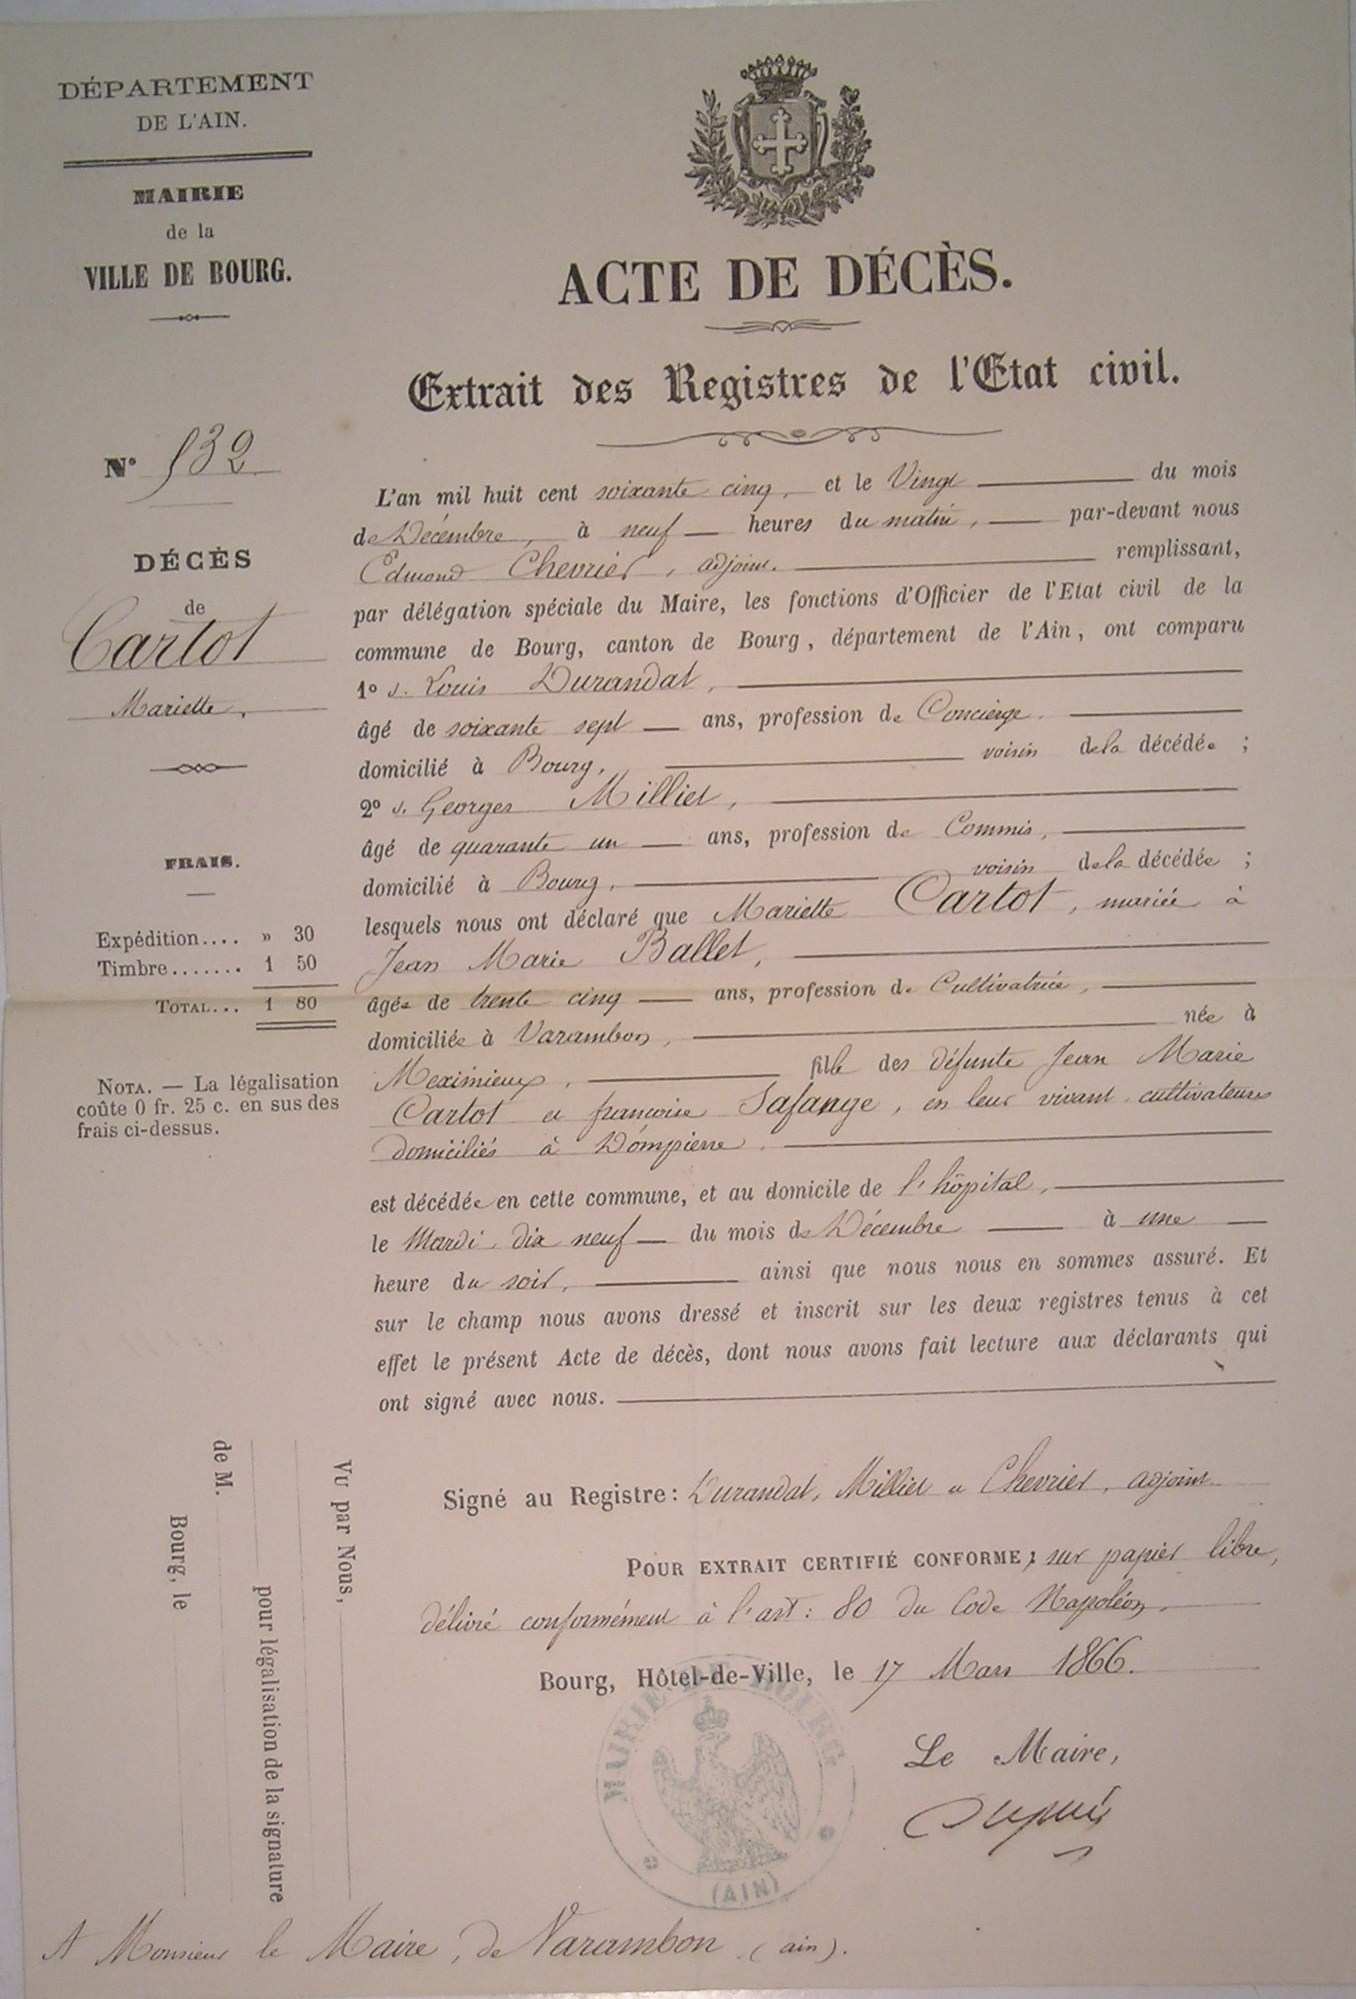 DÉPARTEMENT
DE L'AIN.
MAIRIE
de la
VILLE DE BOURG.
ACTE DE DÉCÈS.
Extrait des Registres de l'Etat civil.
N° 532
DÉCÈS
de
Cartot
Mariette,
FRAIS.
Expédition.... » 30
Timbre....... 1 50
TOTAL... 1 80
NOTA. — La légalisation
coûte 0 fr. 25 c. en sus des
frais ci-dessus.
L'an mil huit cent soixante cinq, et le Vingt du mois
de Décembre, à neuf heures du matin, par-devant nous
Edmond Chevrier, adjoint. remplissant,
par délégation spéciale du Maire, les fonctions d'Officier de l'Etat civil de la
commune de Bourg, canton de Bourg, département de l'Ain, ont comparu
1° s. Louis Durandat,
âgé de soixante sept ans, profession de Concierge.
domicilié à Bourg, voisin de la décédée ;
2° s. Georges Milliet,
âgé de quarante un ans, profession de Commis,
domicilié à Bourg, voisin de la décédée ;
lesquels nous ont déclaré que Mariette Cartot, mariée à
Jean Marie Ballet,
âgée de trente cinq ans, profession de Cultivatrice,
domiciliée à Varambon, née à
Meximieux, fille des défunts Jean Marie
Cartot et françoise Lafange, en leur vivant cultivateurs
domiciliés à Dompierre.
est décédée en cette commune, et au domicile de l'hôpital,
le Mardi, dix neuf du mois de Décembre à une
heure du soir, ainsi que nous nous en sommes assuré. Et
sur le champ nous avons dressé et inscrit sur les deux registres tenus à cet
effet le présent Acte de décès, dont nous avons fait lecture aux déclarants qui
ont signé avec nous.
Signé au Registre: Durandat, Milliet et Chevrier, adjoint
POUR EXTRAIT CERTIFIÉ CONFORME; sur papier libre,
délivré conformément à l'art: 80 du Code Napoléon.
Bourg, Hôtel-de-Ville, le 17 Mars 1866.
Le Maire,
MAIRIE DE BOURG
(AIN)
Vu par Nous,
pour légalisation de la signature
de M.
Bourg, le
A Monsieur le Maire, de Varambon (ain).